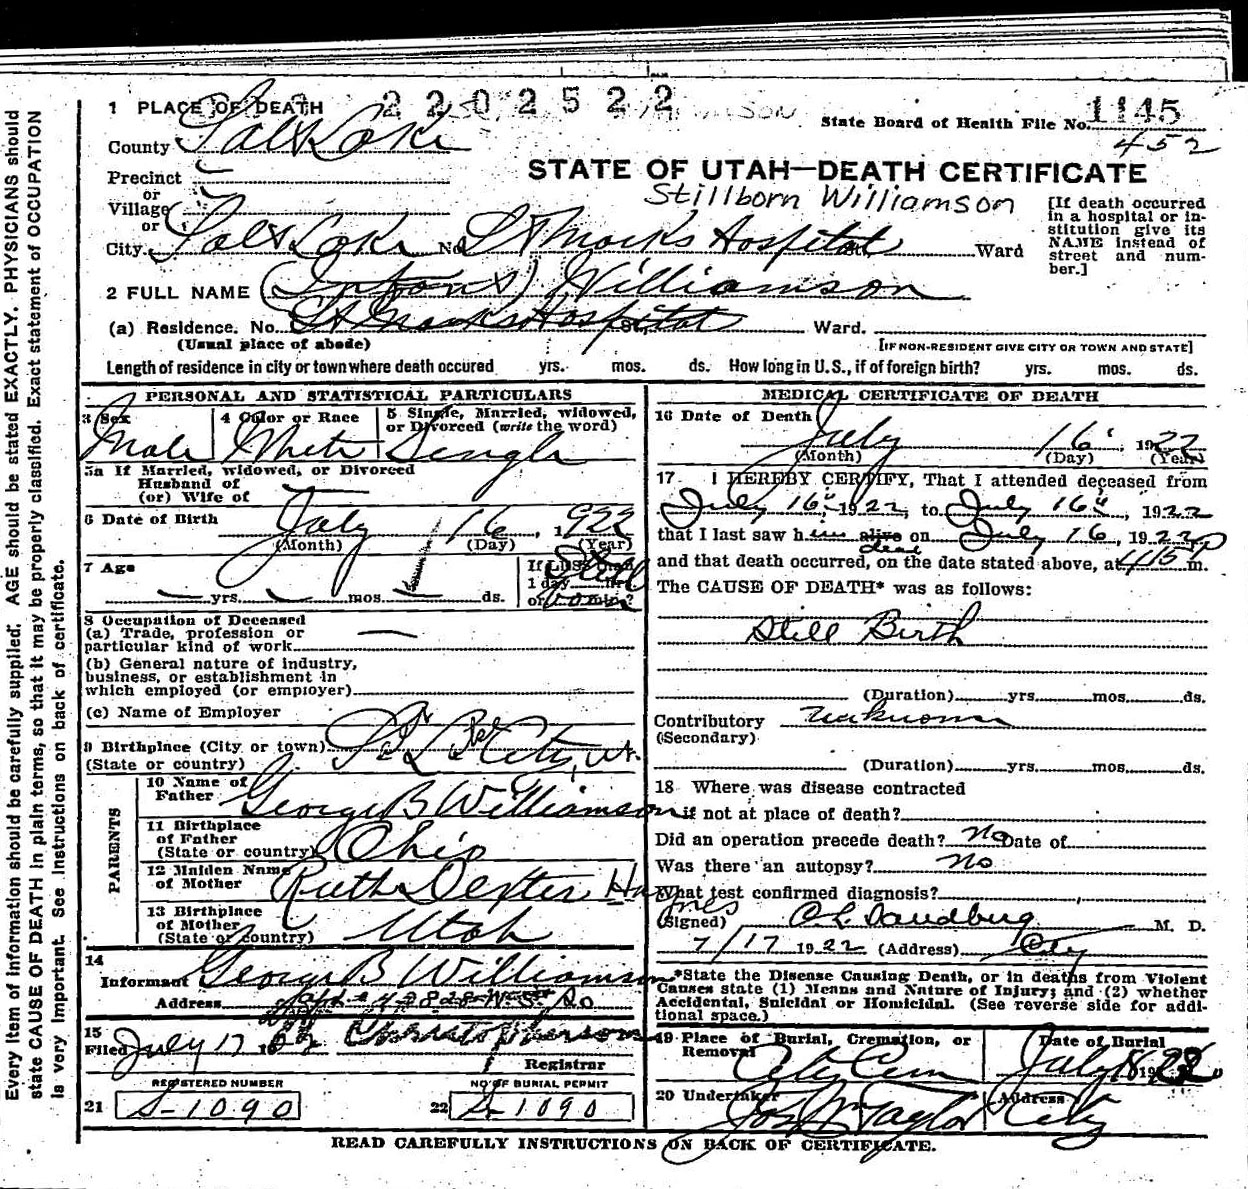 Every item of information should be carefully supplied. AGE should be stated EXACTLY. PHYSICIANS should
state CAUSE OF DEATH in plain terms, so that it may be properly classified. Exact statement of OCCUPATION
is very important. See instructions on back of certificate.
1 PLACE OF DEATH 2202522
State Board of Health File No. 1145
452
County Salt Lake
STATE OF UTAH—DEATH CERTIFICATE
Stillborn Williamson
Precinct
or
Village
or
City. Salt Lake No. St Marks Hospital St. Ward
[If death occurred
in a hospital or in-
stitution give its
NAME instead of
street and num-
ber.]
2 FULL NAME (Infant) Williamson
(a) Residence. No. St Marks Hospital St., Ward.
(Usual place of abode)
[IF NON-RESIDENT GIVE CITY OR TOWN AND STATE]
Length of residence in city or town where death occured yrs. mos. ds. How long in U.S., if of foreign birth? yrs. mos. ds.
PERSONAL AND STATISTICAL PARTICULARS
3 Sex
Male
4 Color or Race
White
5 Single, Married, widowed,
or Divorced (write the word)
Single
5a If Married, widowed, or Divorced
Husband of
(or) Wife of
6 Date of Birth July 16, 1922
(Month) (Day) (Year)
7 Age
yrs. mos. ds.
If LESS than
1 day hrs.
or min.?
Still
born
8 Occupation of Deceased
(a) Trade, profession or
particular kind of work
(b) General nature of industry,
business, or establishment in
which employed (or employer)
(c) Name of Employer
9 Birthplace (City or town) St Lke City, Ut.
(State or country)
PARENTS
10 Name of
Father George B Williamson
11 Birthplace
of Father
(State or country) Ohio
12 Maiden Name
of Mother Ruth Dexter Haynes
13 Birthplace
of Mother
(State or country) Utah
14
Informant George B Williamson
Address
15
Filed July 17 1922 Christopherson
Registrar
REGISTERED NUMBER
21 S-1090
NO OF BURIAL PERMIT
22 S-1090
MEDICAL CERTIFICATE OF DEATH
16 Date of Death July 16, 1922
(Month) (Day) (Year)
17 I HEREBY CERTIFY, That I attended deceased from
July 16", 1922, to July 16", 1922
that I last saw him alive on July 16, 1922
dead
and that death occurred, on the date stated above, at 4/15 P m.
The CAUSE OF DEATH* was as follows:
Still Birth
(Duration) yrs. mos. ds.
Contributory unknown
(Secondary)
(Duration) yrs. mos. ds.
18 Where was disease contracted
if not at place of death?
Did an operation precede death? no Date of
Was there an autopsy? no
What test confirmed diagnosis?
(Signed) C L Sandberg M. D.
7/17 1922 (Address) City
*State the Disease Causing Death, or in deaths from Violent
Causes state (1) Means and Nature of Injury; and (2) whether
Accidental, Suicidal or Homicidal. (See reverse side for addi-
tional space.)
19 Place of Burial, Cremation, or
Removal City Cem
Date of Burial
July 18 1922
20 Undertaker Jos Wm Taylor
Address City
READ CAREFULLY INSTRUCTIONS ON BACK OF CERTIFICATE.